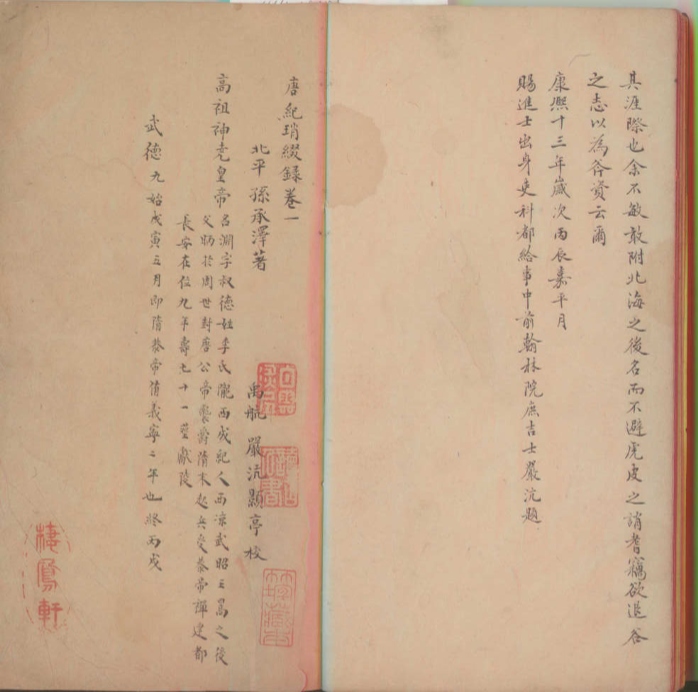 其涯際也余不敏敢附北海之後名而不避虎皮之誚者竊欲退谷
之志以為斧資云爾
康熙十三年歲次丙辰嘉平月
賜進士出身吏科都給事中前翰林院庶吉士嚴沆題
唐紀瑣綴錄卷一
北平 孫承澤著
禹航 嚴沆顥亭校
高祖神堯皇帝 名淵字叔德姓李氏隴西成紀人西涼武昭王暠之後
父昞於周世封唐公帝襲爵隋末起兵受恭帝禪建都
長安在位九年壽七十一葬獻陵
武德九 始戊寅五月即隋恭帝侑義寧二年也終丙戌
棲鳳軒